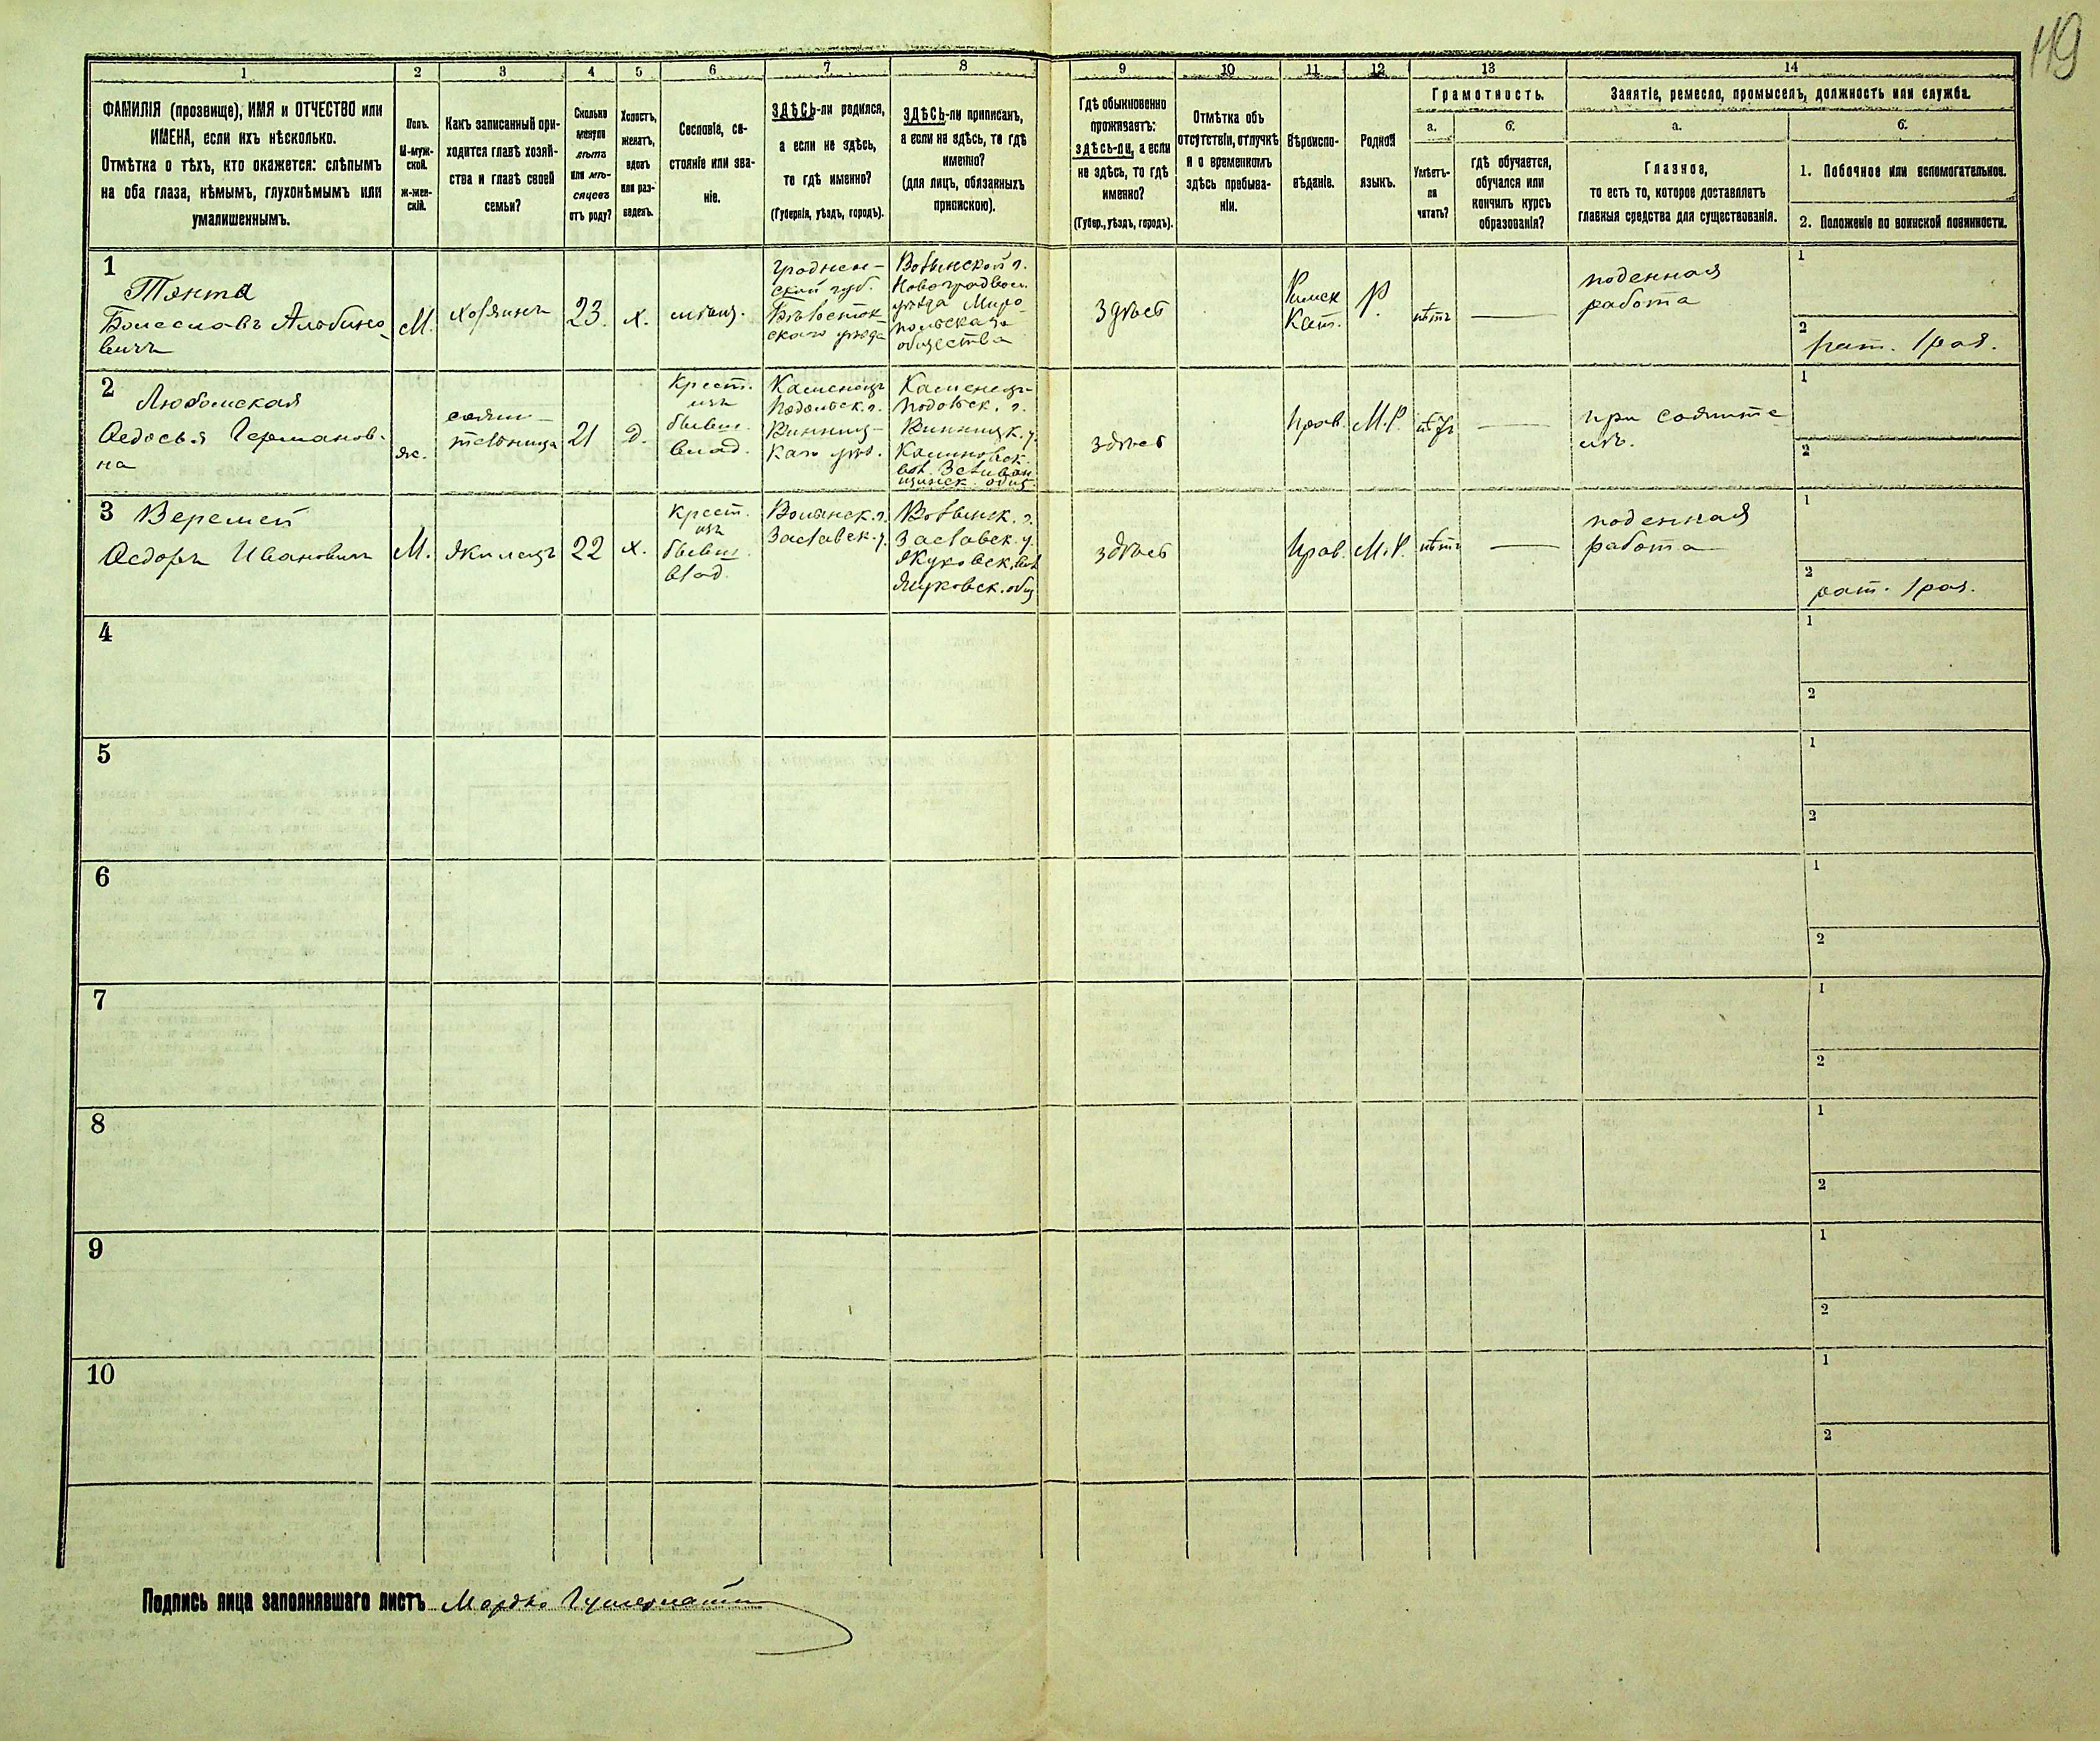 119
1 2 3 4 5 6 7 8 9 10 11 12 13 14
ФАМИЛІЯ (прозвище), ИМЯ и ОТЧЕСТВО или
ИМЕНА, если ихъ нѣсколько.
Отмѣтка о тѣхъ, кто окажется: слѣпымъ
на оба глаза, нѣмымъ, глухонѣмымъ или
умалишеннымъ.
Полъ.
М-муж-
ской.
Ж-жен-
скій.
Какъ записанный при-
ходится главѣ хозяй-
ства и главѣ своей
семьи?
Сколько
минуло
лѣтъ
или мѣ-
сяцевъ
отъ роду?
Холостъ,
женатъ,
вдовъ
или раз-
веденъ.
Сословіе, со-
стояніе или зва-
ніе.
ЗДѢСЬ-ли родился,
а если не здѣсь,
то гдѣ именно?
(Губернія, уѣздъ, городъ).
ЗДѢСЬ-ли приписанъ,
а если не здѣсь, то гдѣ
именно?
(для лицъ, обязанныхъ
припискою).
Гдѣ обыкновенно
проживаетъ:
здѣсь-ли, а если
не здѣсь, то гдѣ
именно?
(Губер., уѣздъ, городъ).
Отмѣтка объ
отсутствіи, отлучкѣ
и о временномъ
здѣсь пребыва-
ніи.
Вѣроиспо-
вѣданіе.
Родной
языкъ.
Грамотность.
а.
Умѣетъ-
ли
читать?
б.
гдѣ обучается,
обучался или
кончилъ курсъ
образованія?
Занятіе, ремесло, промыселъ, должность или служба.
а.
Главное,
то есть то, которое доставляетъ
главныя средства для существованія.
б.
1. Побочное или вспомогательное.
2. Положеніе по воинской повинности.
1
Болеславъ Альбино-
вичъ
М.
хозяинъ
23.
х.
мѣщ.
Гроднен-
ской губ.
Бѣлосток
скаго уѣзда
Волынской г.
Новоградвол.
уѣзда Миро
польскаго
общества
Здѣсь
Римск
Кат.
Р.
нѣтъ
поденная
работа
1
2
рат. 1 раз.
2
Любомская
Ѳедосья Германов-
на
ж.
сожи-
тельница
21
д.
Крест.
изъ
бывш.
влад.
Каменецъ
Подольск. г.
Винниц-
каго уѣз.
Каменецъ-
Подольск. г.
Винницк. у.
Калиновск.
вол.
здѣсь
Прав.
М.Р.
нѣтъ
при сожите
лѣ.
1
2
3
Веремей
Ѳедоръ Ивановичъ
М.
жилецъ
22
х.
Крест.
изъ
бывш.
влад.
Волынск. г.
Заславск. у.
Волынск. г.
Заславск. у.
здѣсь
Прав.
М.Р.
нѣтъ
поденная
работа
1
2
рат. 1 раз.
4
1
2
5
1
2
6
1
2
7
1
2
8
1
2
9
1
2
10
1
2
Подпись лица заполнявшаго листъ Мордко